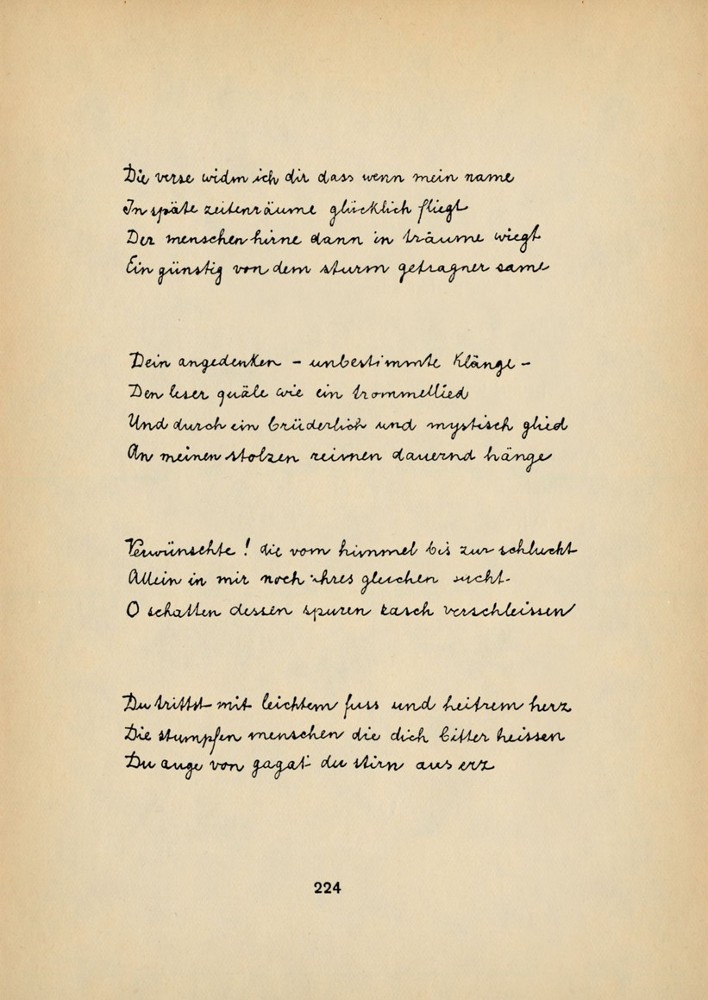 Die verse widm ich dir dass wenn mein name
In späte zeitenräume glücklich fliegt
Der menschen hirne dann in träume wiegt
Ein günstig von dem sturm getragner same
Dein angedenken – unbestimmte Klänge –
Den leser quäle wie ein trommellied
Und durch ein brüderlich und mystisch glied
An meinen stolzen reimen dauernd hänge
Verwünschte! die vom himmel bis zur schlucht
Allein in mir noch ihres gleichen sucht.
O schatten dessen spuren rasch verschleissen
Du trittst mit leichtem fuss und heitrem herz
Die stumpfen menschen die dich bitter heissen
Du auge von gagat du stirn aus erz
224